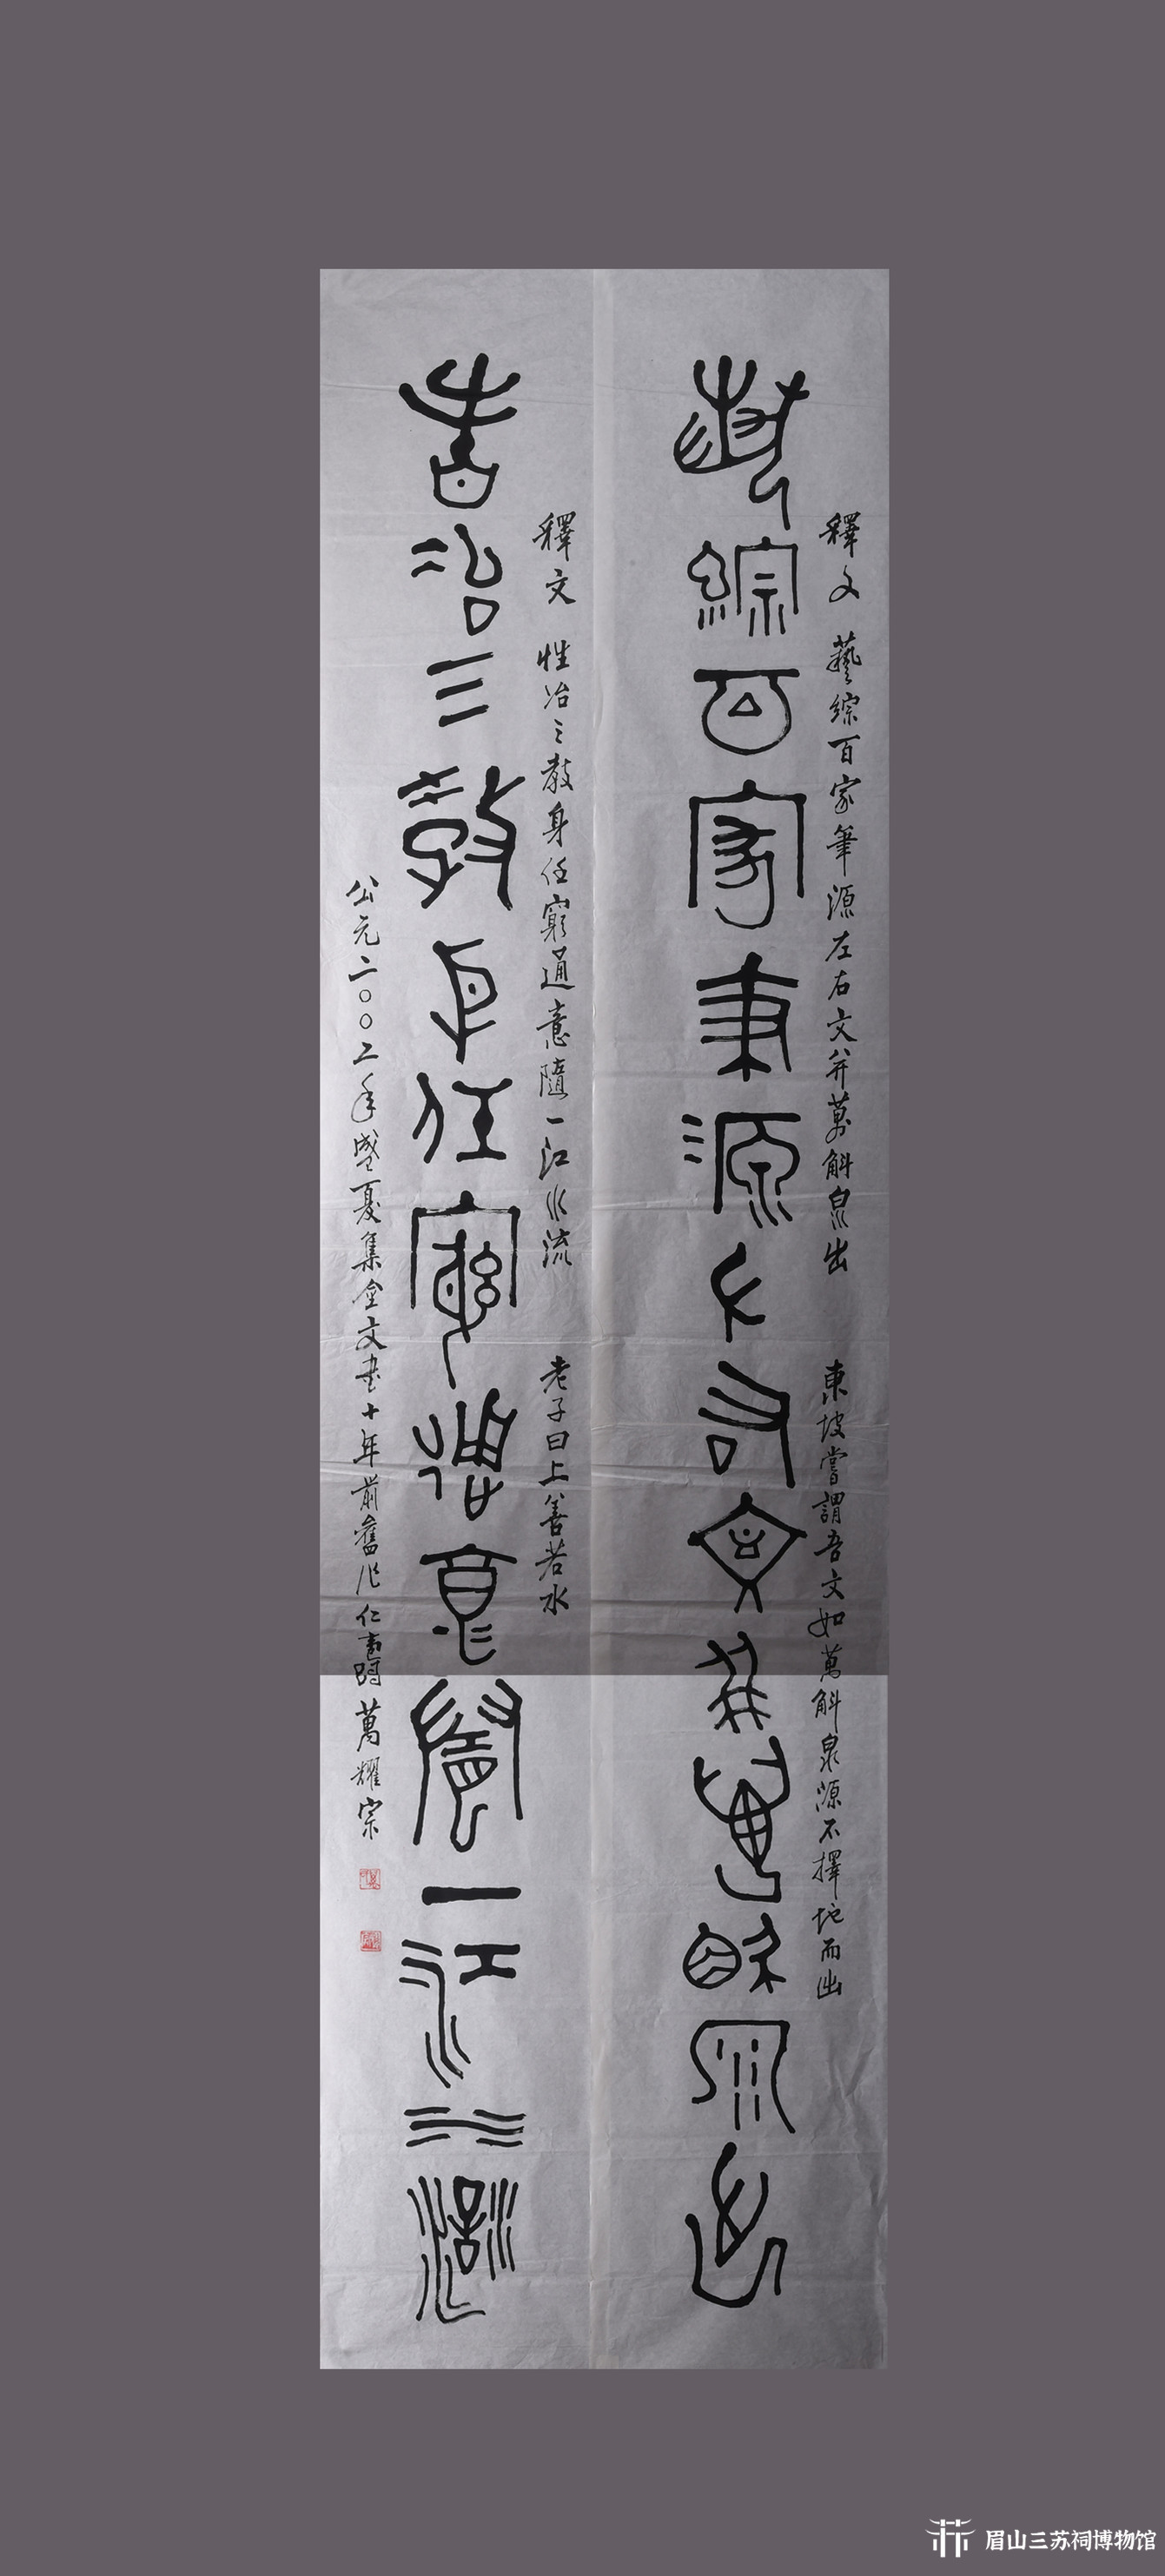 釋文 藝綜百家筆源左右文并萬斛泉出 東坡嘗謂吾文如萬斛泉源不擇地而出
藝綜百家筆源左右文并萬斛泉出
釋文 性冶三教身任窮通意隨一江水流 老子曰上善若水
性冶三教身任窮通意隨一江水流
公元二〇〇二年盛夏集金文書十年前舊作仁壽 萬耀宗
眉山三苏祠博物馆